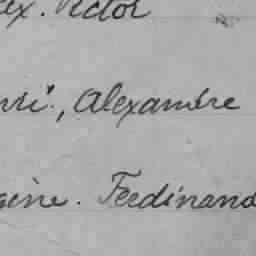 ex. Victor
nri., Alexandre
gène. Ferdinand